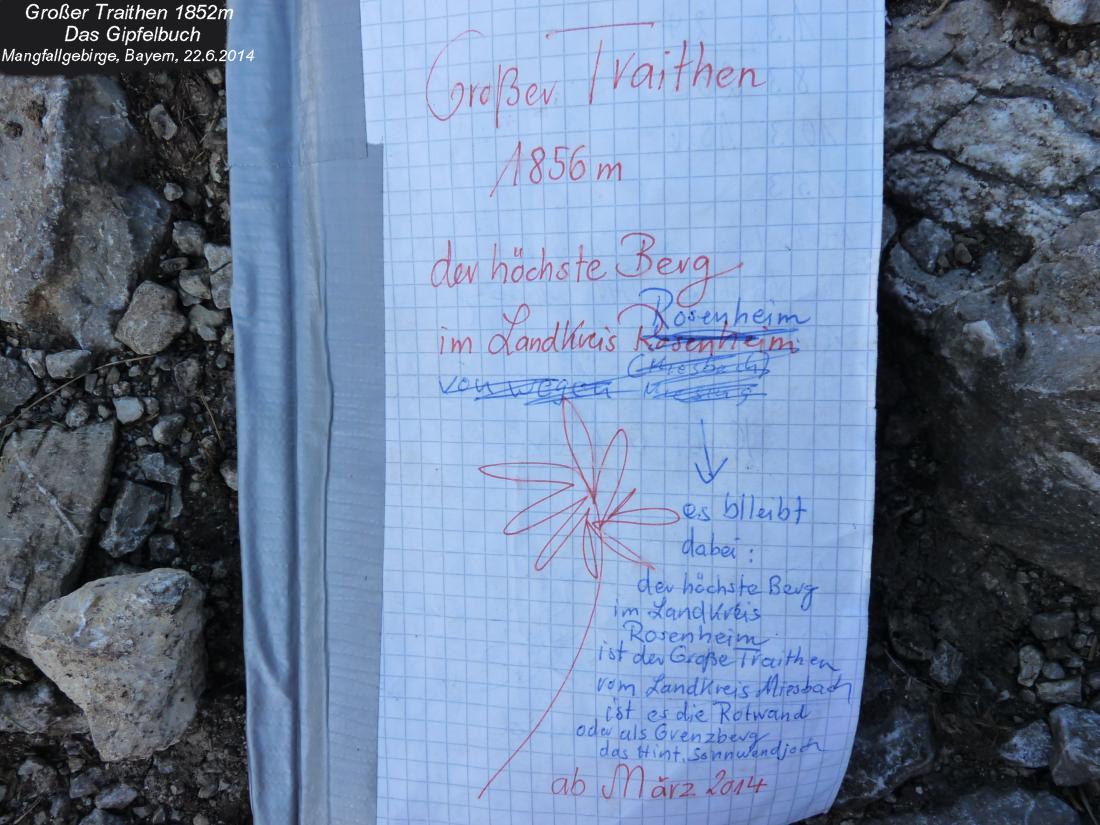 Großer Traithen 1852m
Das Gipfelbuch
Mangfallgebirge, Bayern, 22.6.2014
Großer Traithen
1856 m
der höchste Berg
Rosenheim
im Landkreis Rosenheim
(Miesbach)
von wegen
es blleibt
dabei:
der höchste Berg
im Landkreis
Rosenheim
ist der Große Traithen
vom Landkreis Miesbach
ist es die Rotwand
oder als Grenzberg
das Hint. Sonnwendjoch
ab März 2014